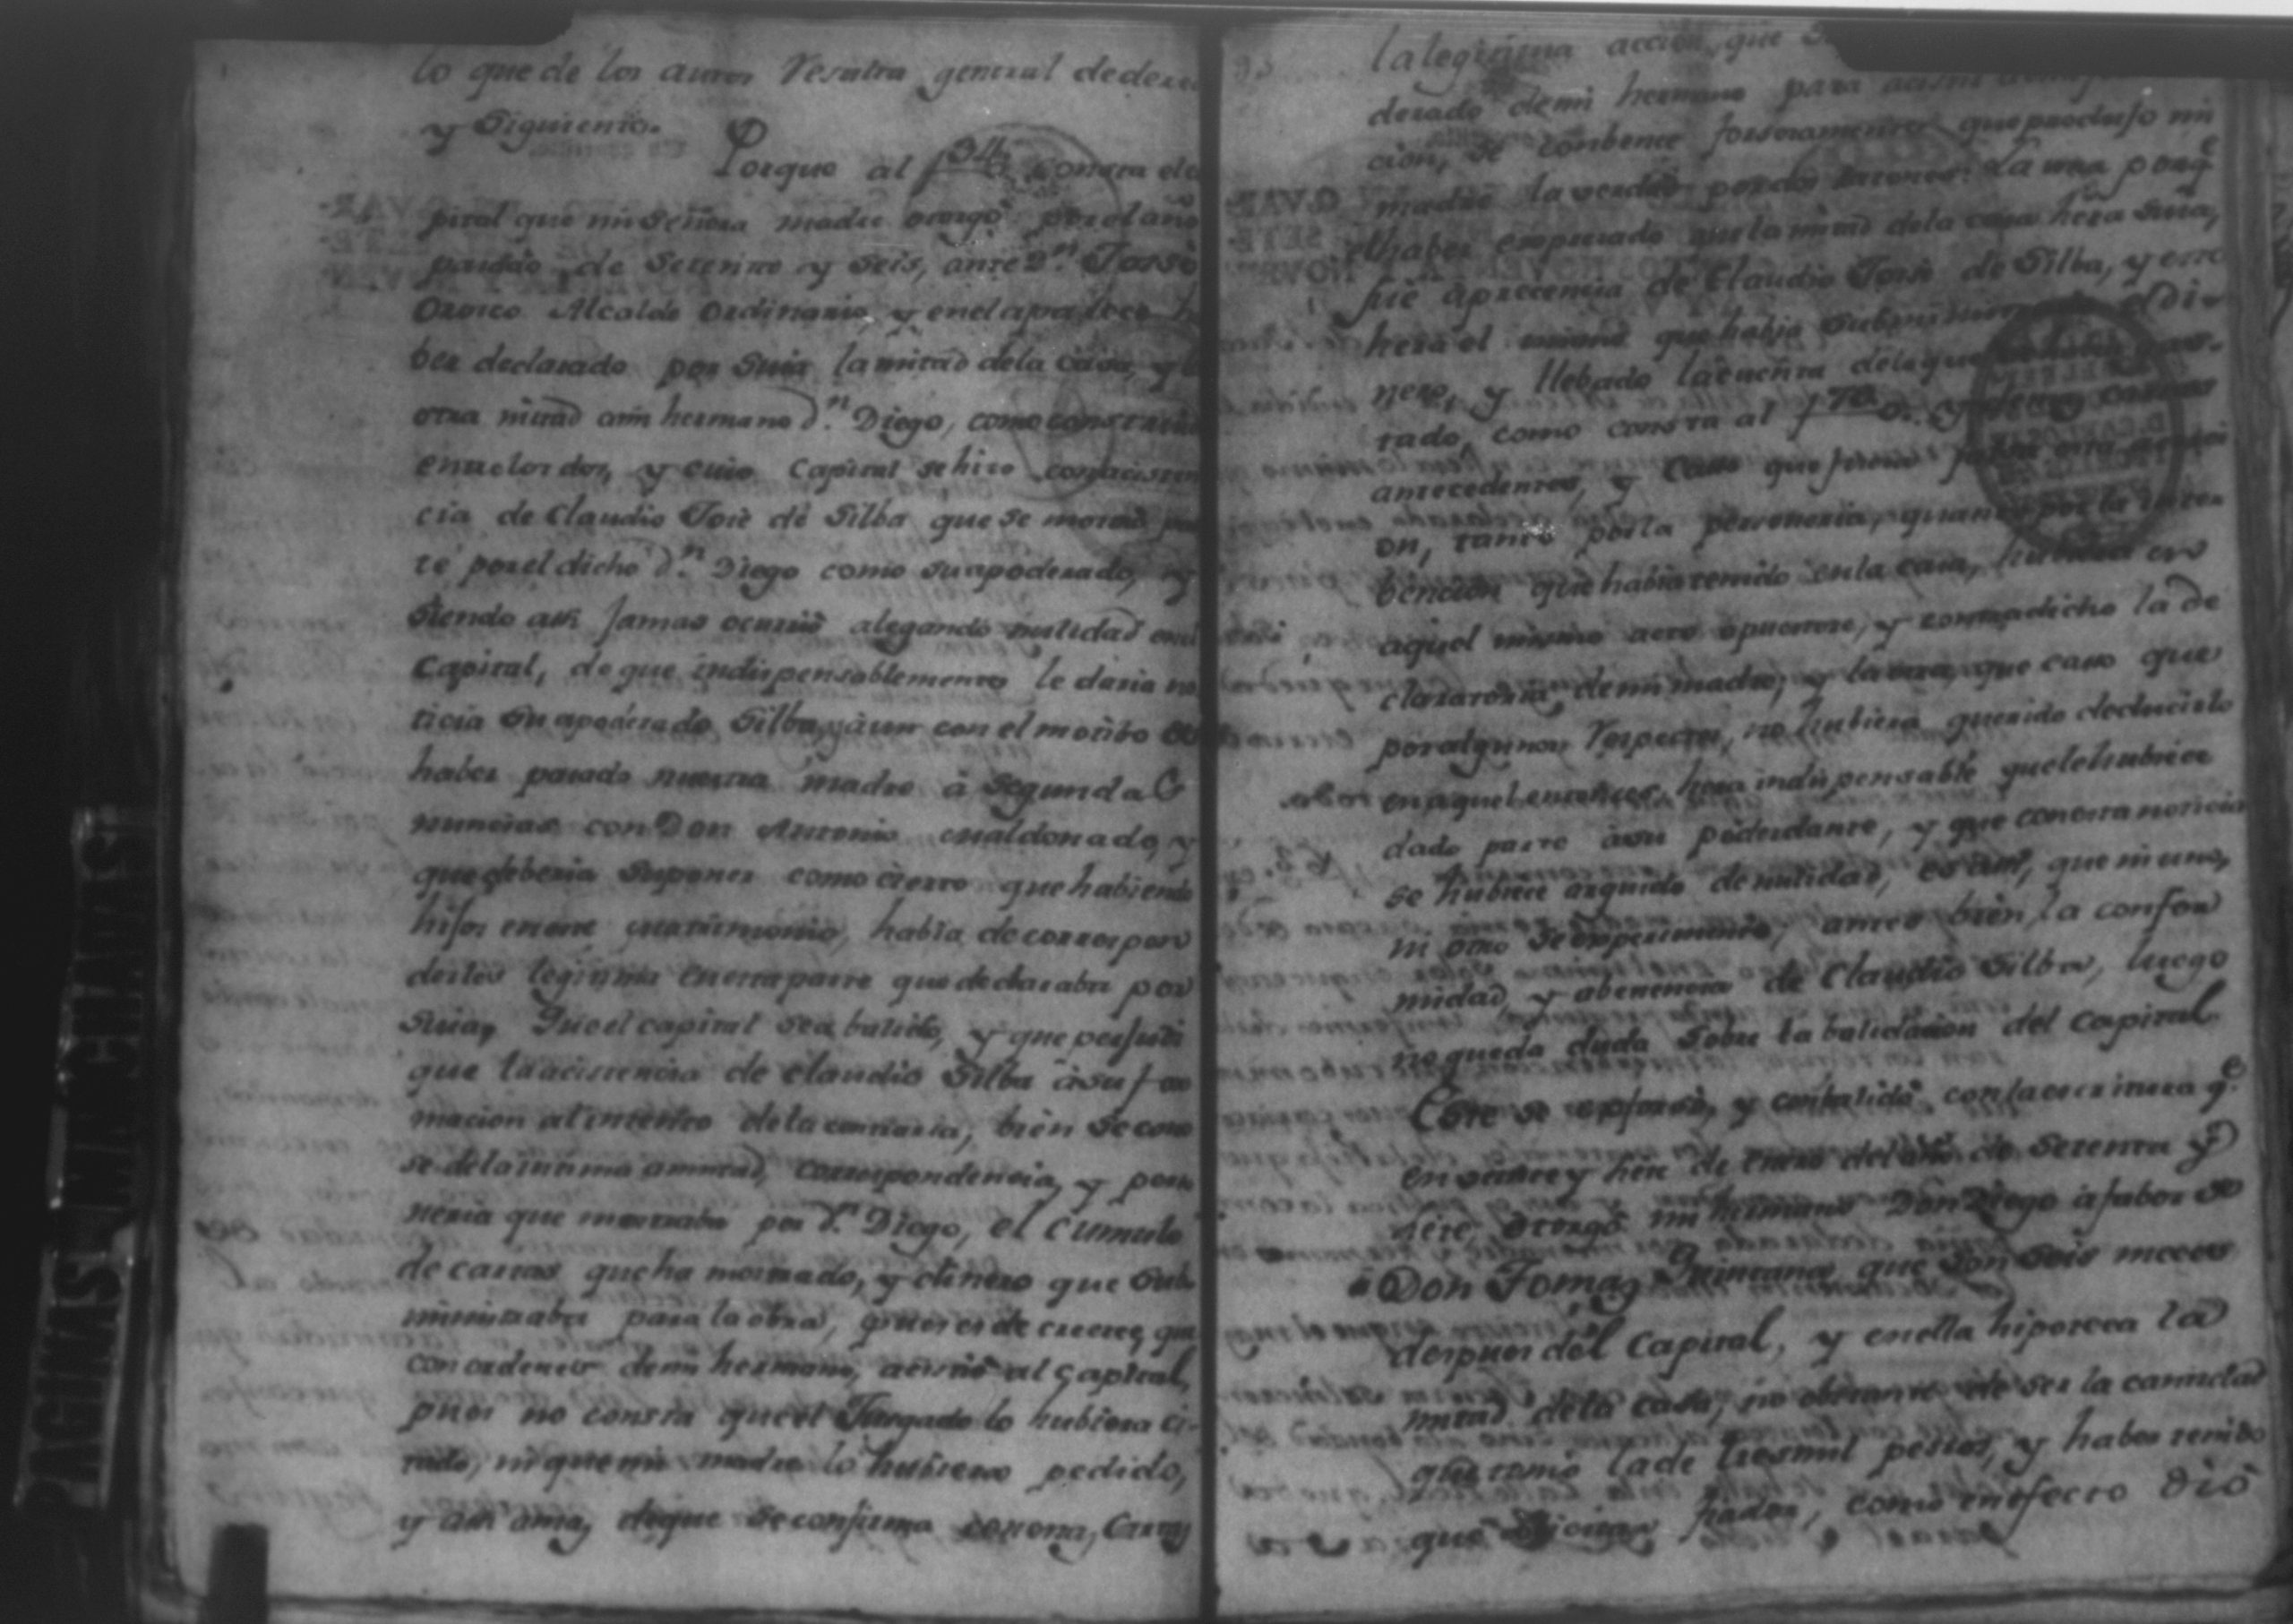 lo que de los autos Resulta general de derec
y Siguiente.
Porque al f 34 consta el ca
pital que mi Señora madre otorgò por el año
pasado de Setenta y Seis, ante Dn. Jossè
Orosco Alcalde Ordinario, y en el aparece h
ber declarado por Suia la mitad dela Casa, y la
otra mitad ami hermano Dn. Diego, como
entre los dos, y cuio Capital se hizo con
cia de Claudio Josè de Silba que se mostrò par
te por el dicho Dn. Diego como su apoderado, y
siendo asi Jamas ocurriò alegando nulidad en el
Capital, de que indispensablemente le daria no
ticia Su apoderado Silba, y àun con el motibo de
haber pasado nuestra madre à Segundas
nuncias con Don Antonio Maldonado, y
que deberia Suponer como cierto que habiendo
hijos en este matrimonio, habia de correspon
derles legitima en esta parte que declaraba por
Suia, Que el capital sea balido, y que perjudi
que la acistencia de Claudio Silba à su for
macion al intento dela contraria, bien se cono
se dela intima amistad, correspondencia, y perso
neria que mostraba por Dn. Diego, el Cumulo
de cartas que ha mostrado, y dinero que Sub
ministraba para la obra, pues es de creerse, que
con ordenes de mi hermano, acistiò al Capital,
pues no consta que el Jusgado lo hubiera ci-
tado, ni que mi madre lo hubiese pedido,
y asi
que se confirma Carta
la legitima accion, que
derado de mi hermano para
cion, se conbence forsosamente que produjo mi
madre la verdad por dos razones: la una porqe
el haber expresado que la mitad dela casa hera Suia,
fuè àprecencia de Claudio Josè de Silba, y este
hera el mismo que habia Subministrado el di-
nero, y llebado la cuenta dela que
tado, como consta al f 70
antecedentes, y caso que
on, tanto por la personeria, quanto por la inter
bencion que habia tenido en la casa, hubiera en
aquel mismo acto opuestose, y contradicho la de
claratoria de mi madre; y la otra, que caso que
por algunos Respectos, no hubiera querido deducirlo
en aquel entonces, hera indispensable que le hubiese
dado parte àsu poderdante, y que con esta noticia
se hubiese arguido de nulidad, es asi, que ni uno,
ni otro se experimentò, antes bien, la confor
midad, y abenencia de Claudio Silba, luego
no queda duda Sobre la balidacion del Capital.
Este se esforsò, y conbalidò con la escritura qe.
en veinte y siete de Enero del año de Setenta y
siete, otorgò mi hermano Don Diego àfabor de
Don Tomas Quintana, que son seis meses
despues del Capital, y en ella hipoteca la
mitad dela casa, no obstante de ser la cantidad
que tomò la de tres mil pesos, y haber tenido
que fiador, como en efecto diò